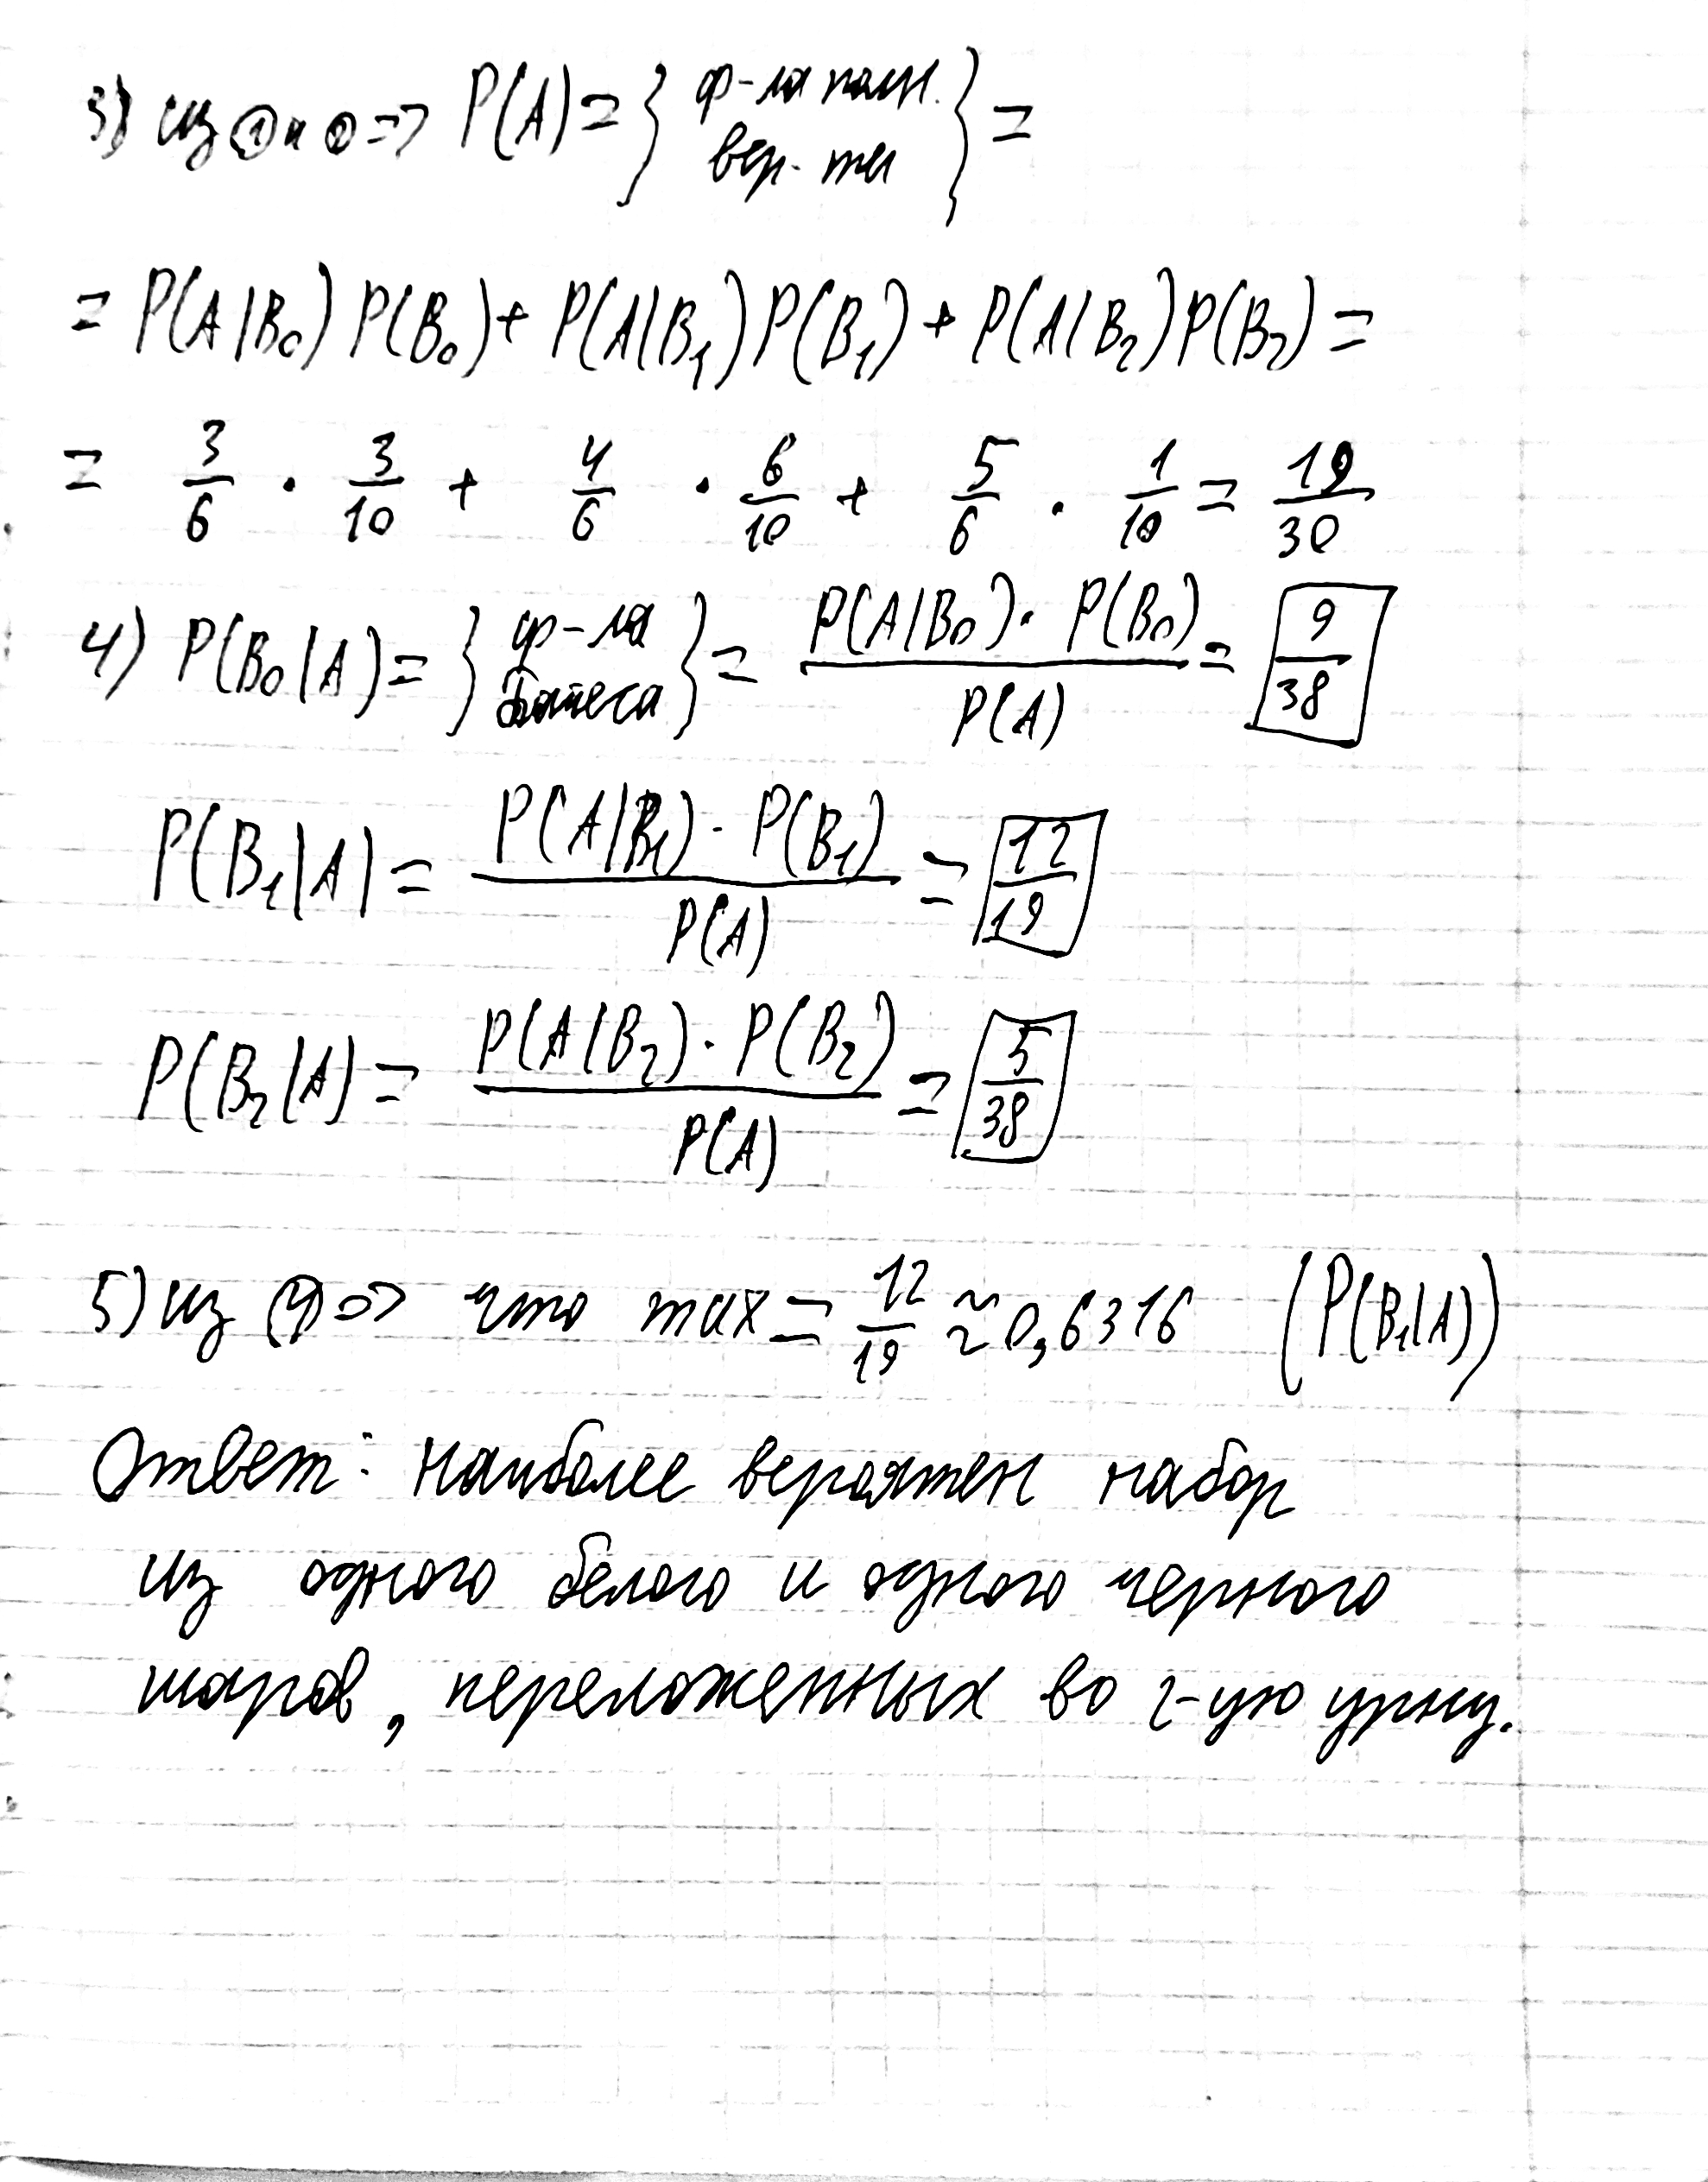 3) из ① и ② => P(A) = } ф-ла полн. вер-ти } =
= P(A|B₀) P(B₀) + P(A|B₁) P(B₁) + P(A|B₂) P(B₂) =
= 3/6 · 3/10 + 4/6 · 6/10 + 5/6 · 1/10 = 19/30
4) P(B₀|A) = } ф-ла Байеса } = P(A|B₀) · P(B₀) / P(A) = 9/38
P(B₁|A) = P(A|B₁) · P(B₁) / P(A) = 12/19
P(B₂|A) = P(A|B₂) · P(B₂) / P(A) = 5/38
5) из ④ => что max = 12/19 ≈ 0,6316 (P(B₁|A))
Ответ: наиболее вероятен набор
из одного белого и одного черного
шаров, переложенных во 2-ую урну.